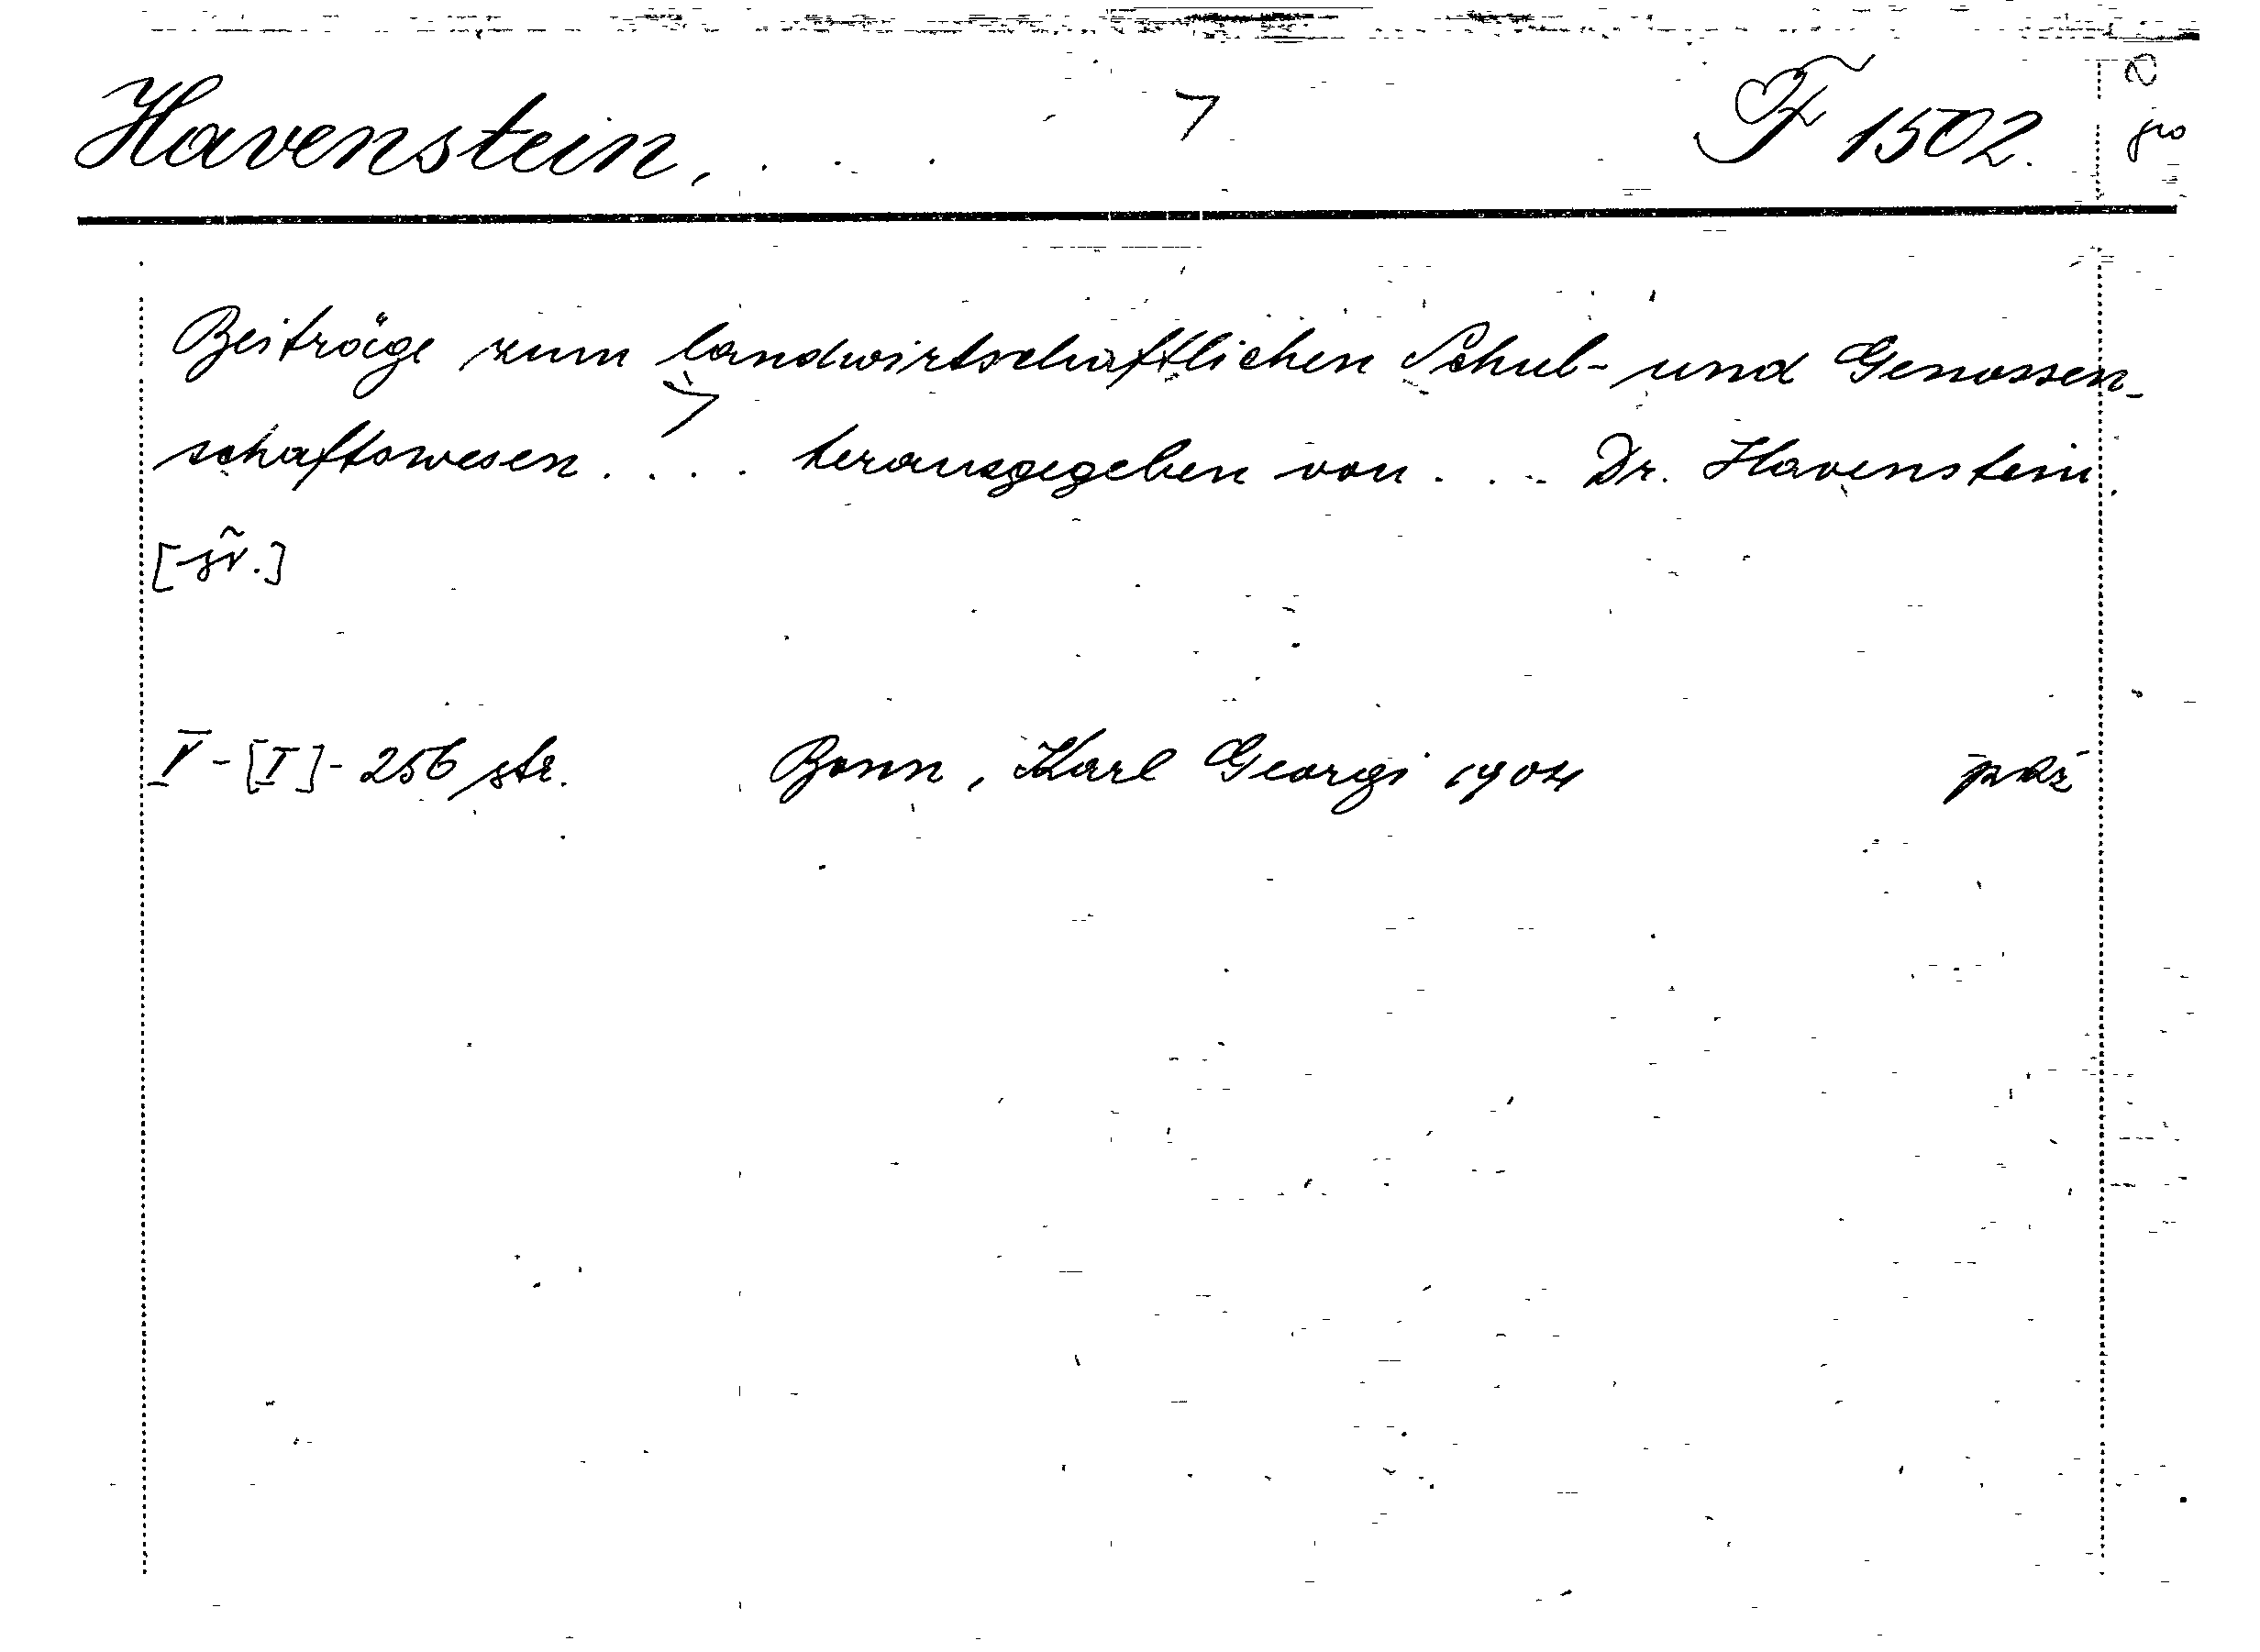 Havenstein, . . . F 1502.
Beiträge zum landwirtschaftlichen Schul- und Genossen-
schaftswesen . . . . herausgegeben von . . . Dr. Havenstein.
V-[I]-256 str. Bonn, Karl Georgi 1904